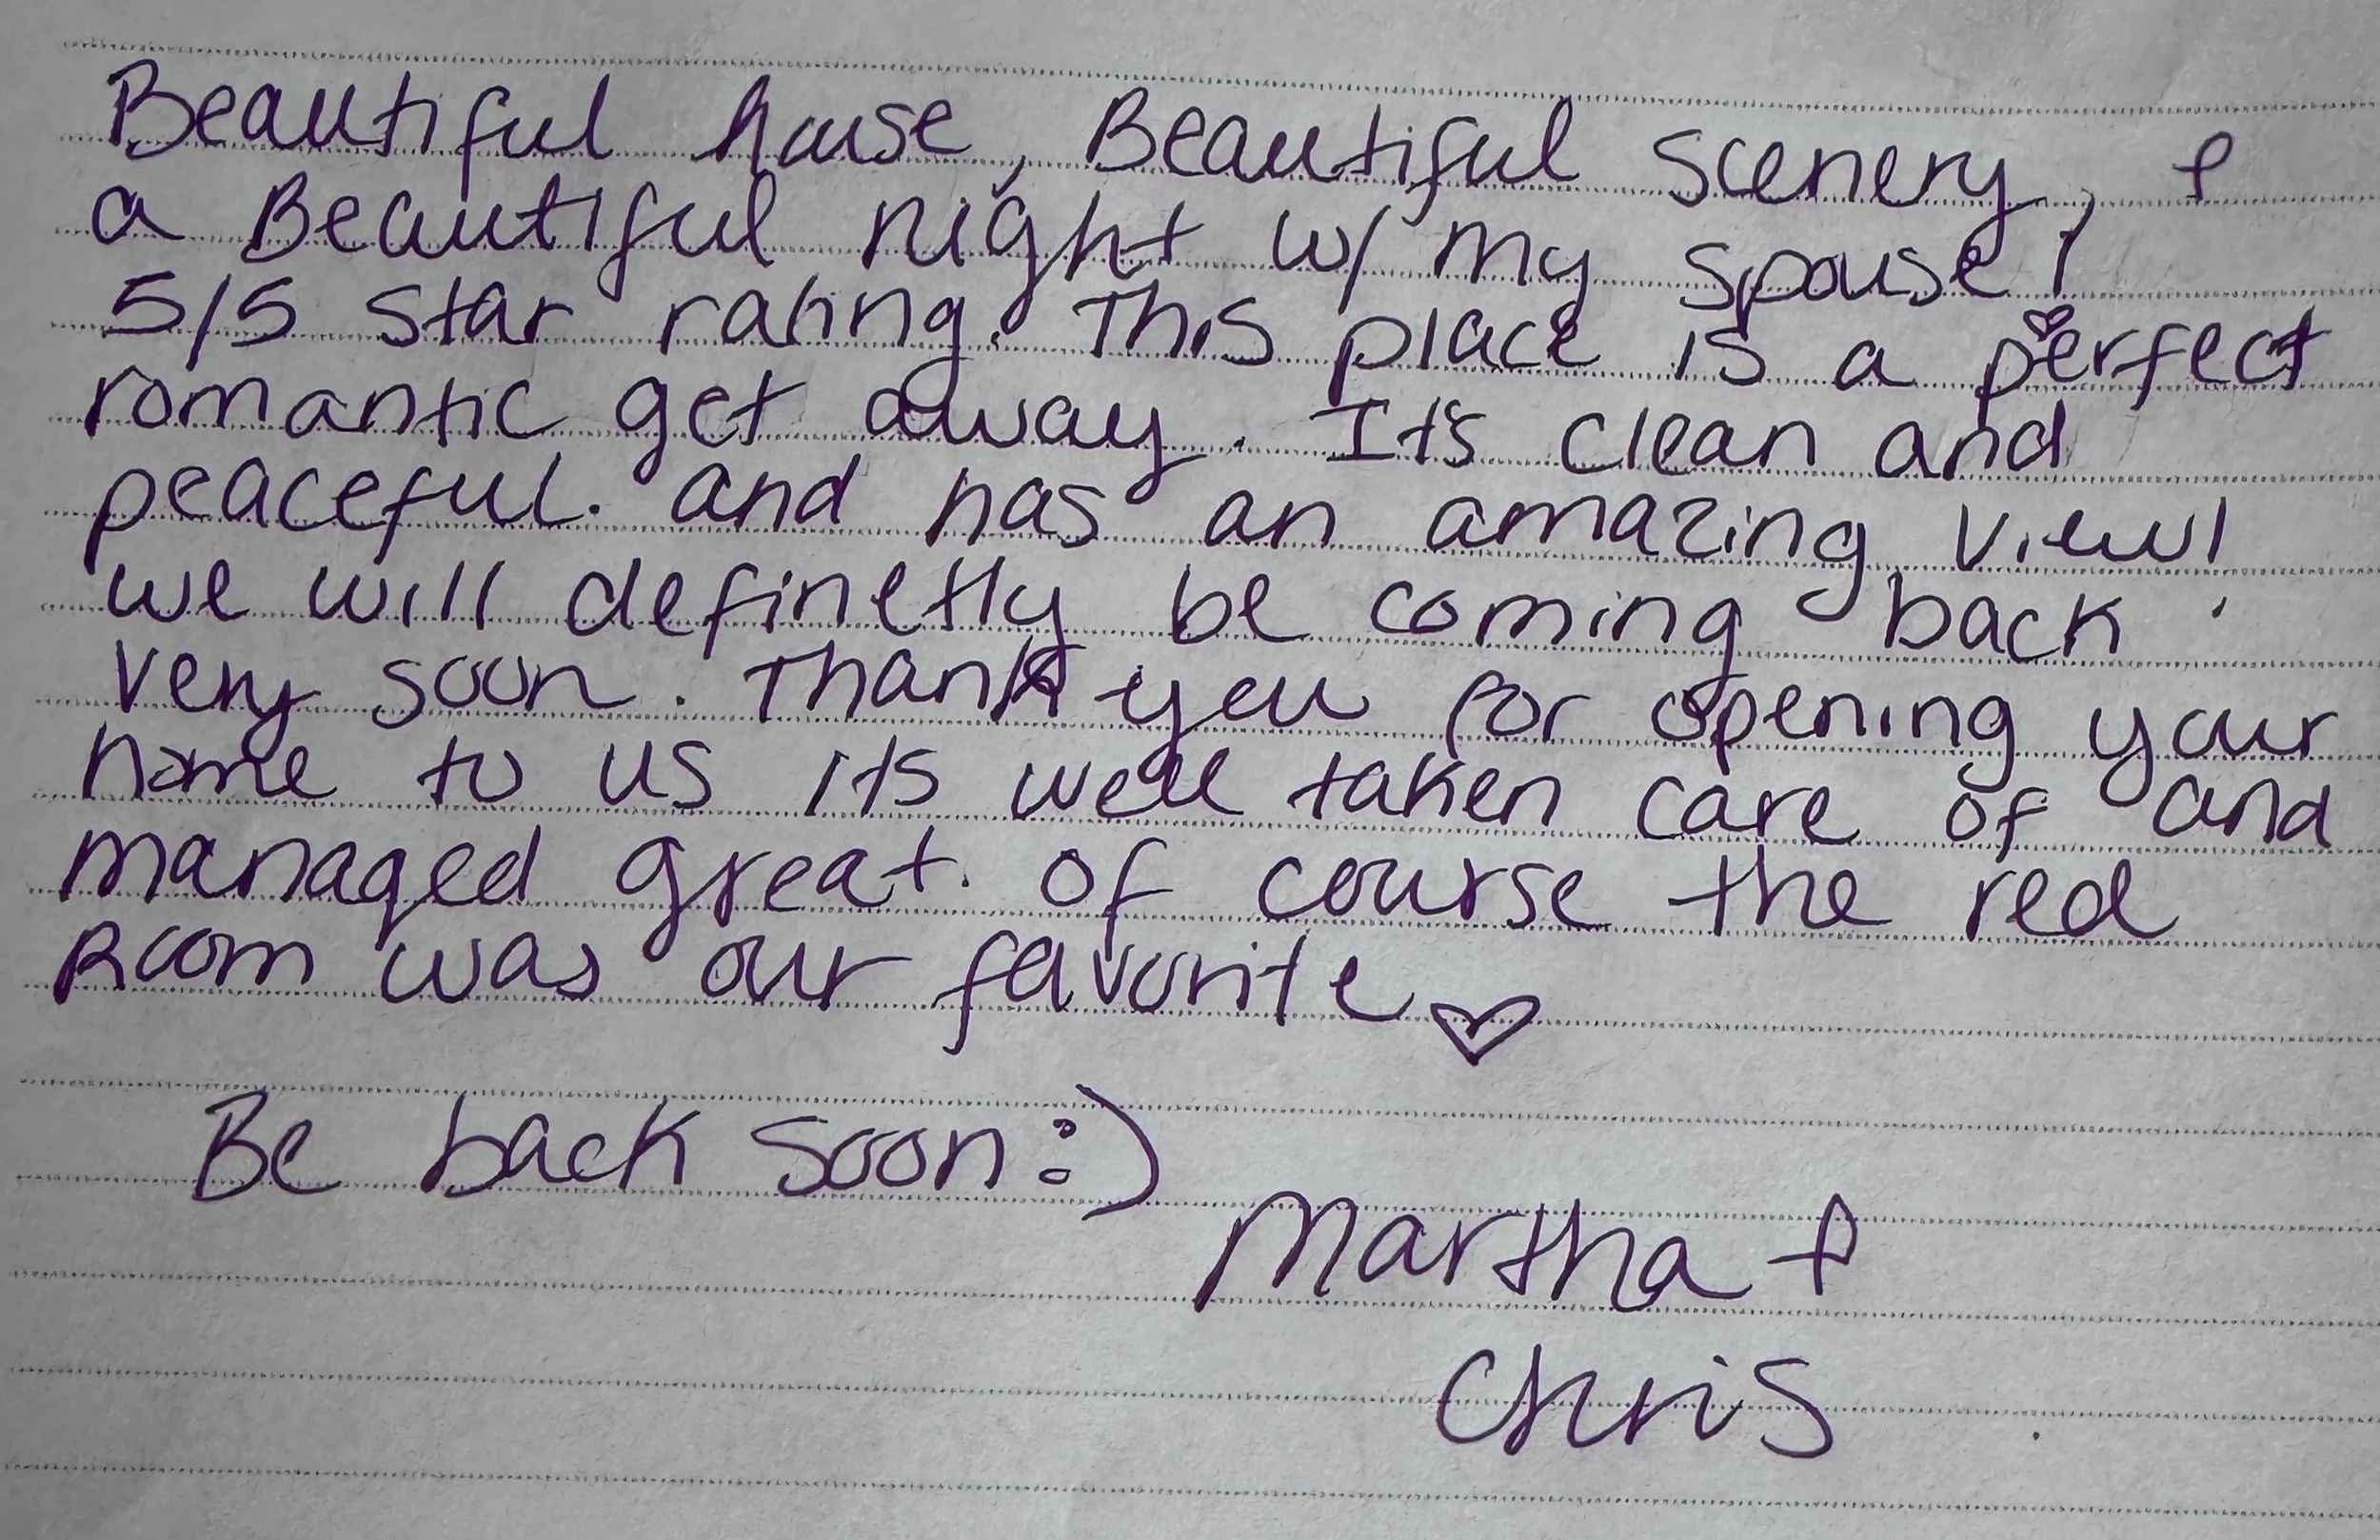 Beautiful house, Beautiful scenery, &
a Beautiful night w/ my spouse!
5/5 star rating. This place is a perfect
romantic get away. It's clean and
peaceful. and has an amazing view!
we will definetly be coming back
very soon. Thank you for opening your
home to us its well taken care of and
managed great. Of course the red
Room was our favorite ♡
Be back soon :)
Martha &
Chris